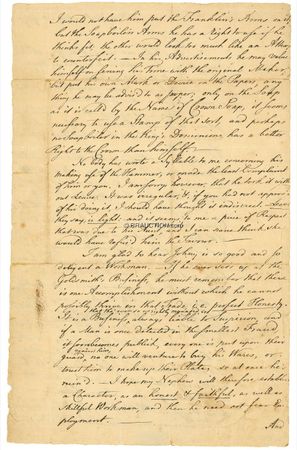 I would not have him put the Franklin's Arms on it;
but the Soapboilers Arms he has a Right to use if he
thinks fit. the other would look too much like an Attempt
to counterfeit. — In his Advertisements he may value
himself on serving his Time with the original Maker,
but put his own Mark or Device on the Papers, or any
thing he may be advised to as proper; only on the Soap
as it is called by the Name of Crown Soap, it seems
necessary to use a Stamp of that sort, and perhaps
no Soapboiler in the King's Dominions has a better
Right to the Crown than himself.
Nobody has wrote a Syllable to me concerning his
making use of the Hammer, or made the least Complaint
of him or you. I am sorry however that he took it with
out Leave. It was irregular, & if you had not approv'd
of his doing it, I should have thought it indiscreet. Leave
they say, is light; and it seems to me a piece of Respect
that was due to his Aunt, and I can scarce think she
would have refus'd him the Favour.
I am glad to hear Johny is so good and so
diligent a Workman. If he ever sets up at the
Goldsmith's Business, he must remember that there
is one Accomplishment without which he cannot
possibly thrive in that Trade, i.e. perfect Honesty.
It is a Business
always liable to Suspicion, and
if a Man is once detected in the smallest Fraud
it soon becomes publick, every one is put upon their
guard against him,
no one will venture to buy his Wares, or
trust him to make up their Plate, so at once he is
ruin'd. — I hope my Nephew will therefore establish
a Character, as an honest & faithful, as well as
skilful Workman, and then he need not fear Em
ployment.
And